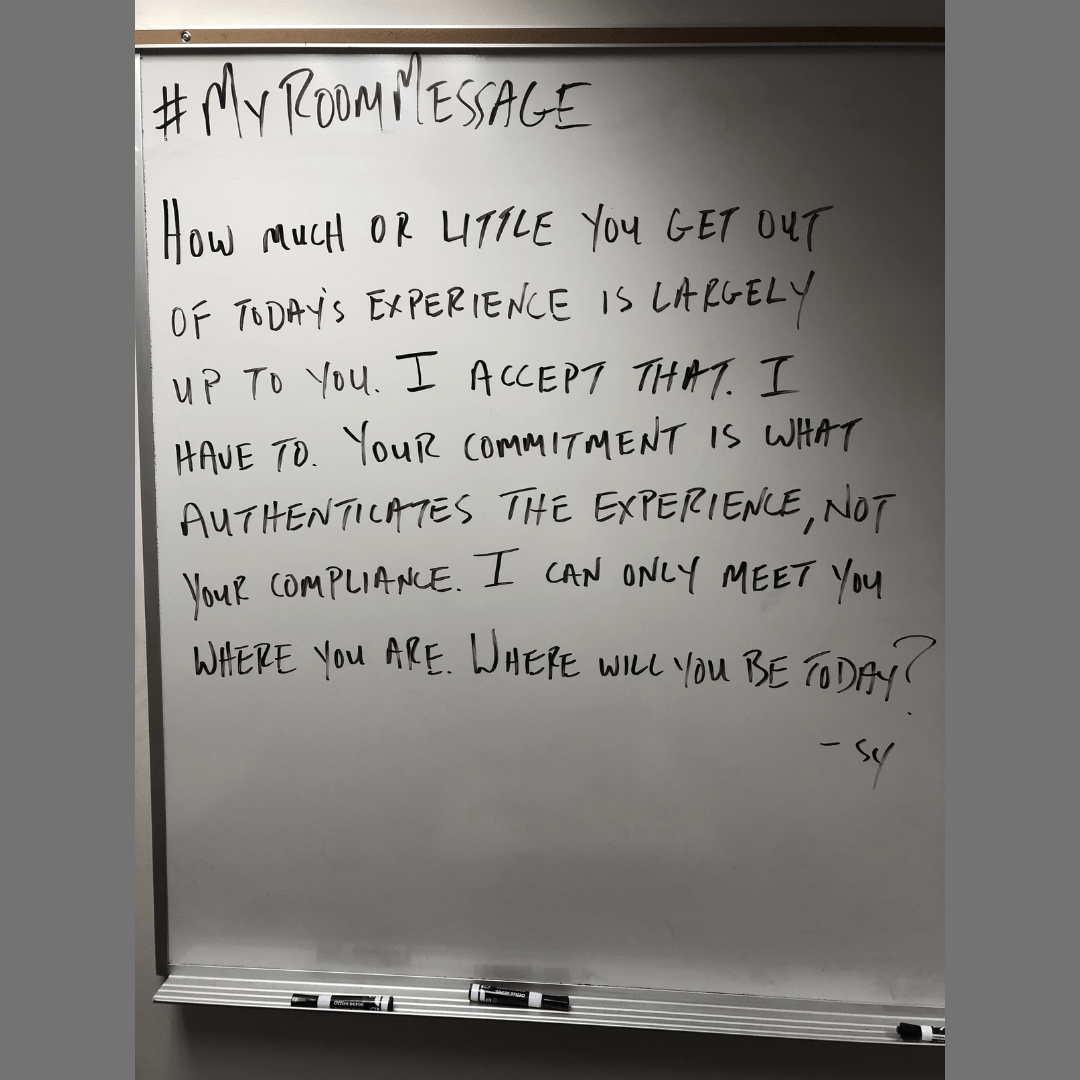 #MyRoomMessage
How much or little you get out
of today's experience is largely
up to you. I accept that. I
have to. Your commitment is what
authenticates the experience, not
your compliance. I can only meet you
where you are. Where will you be today?
- sy
Office DEPOT
Office DEPOT